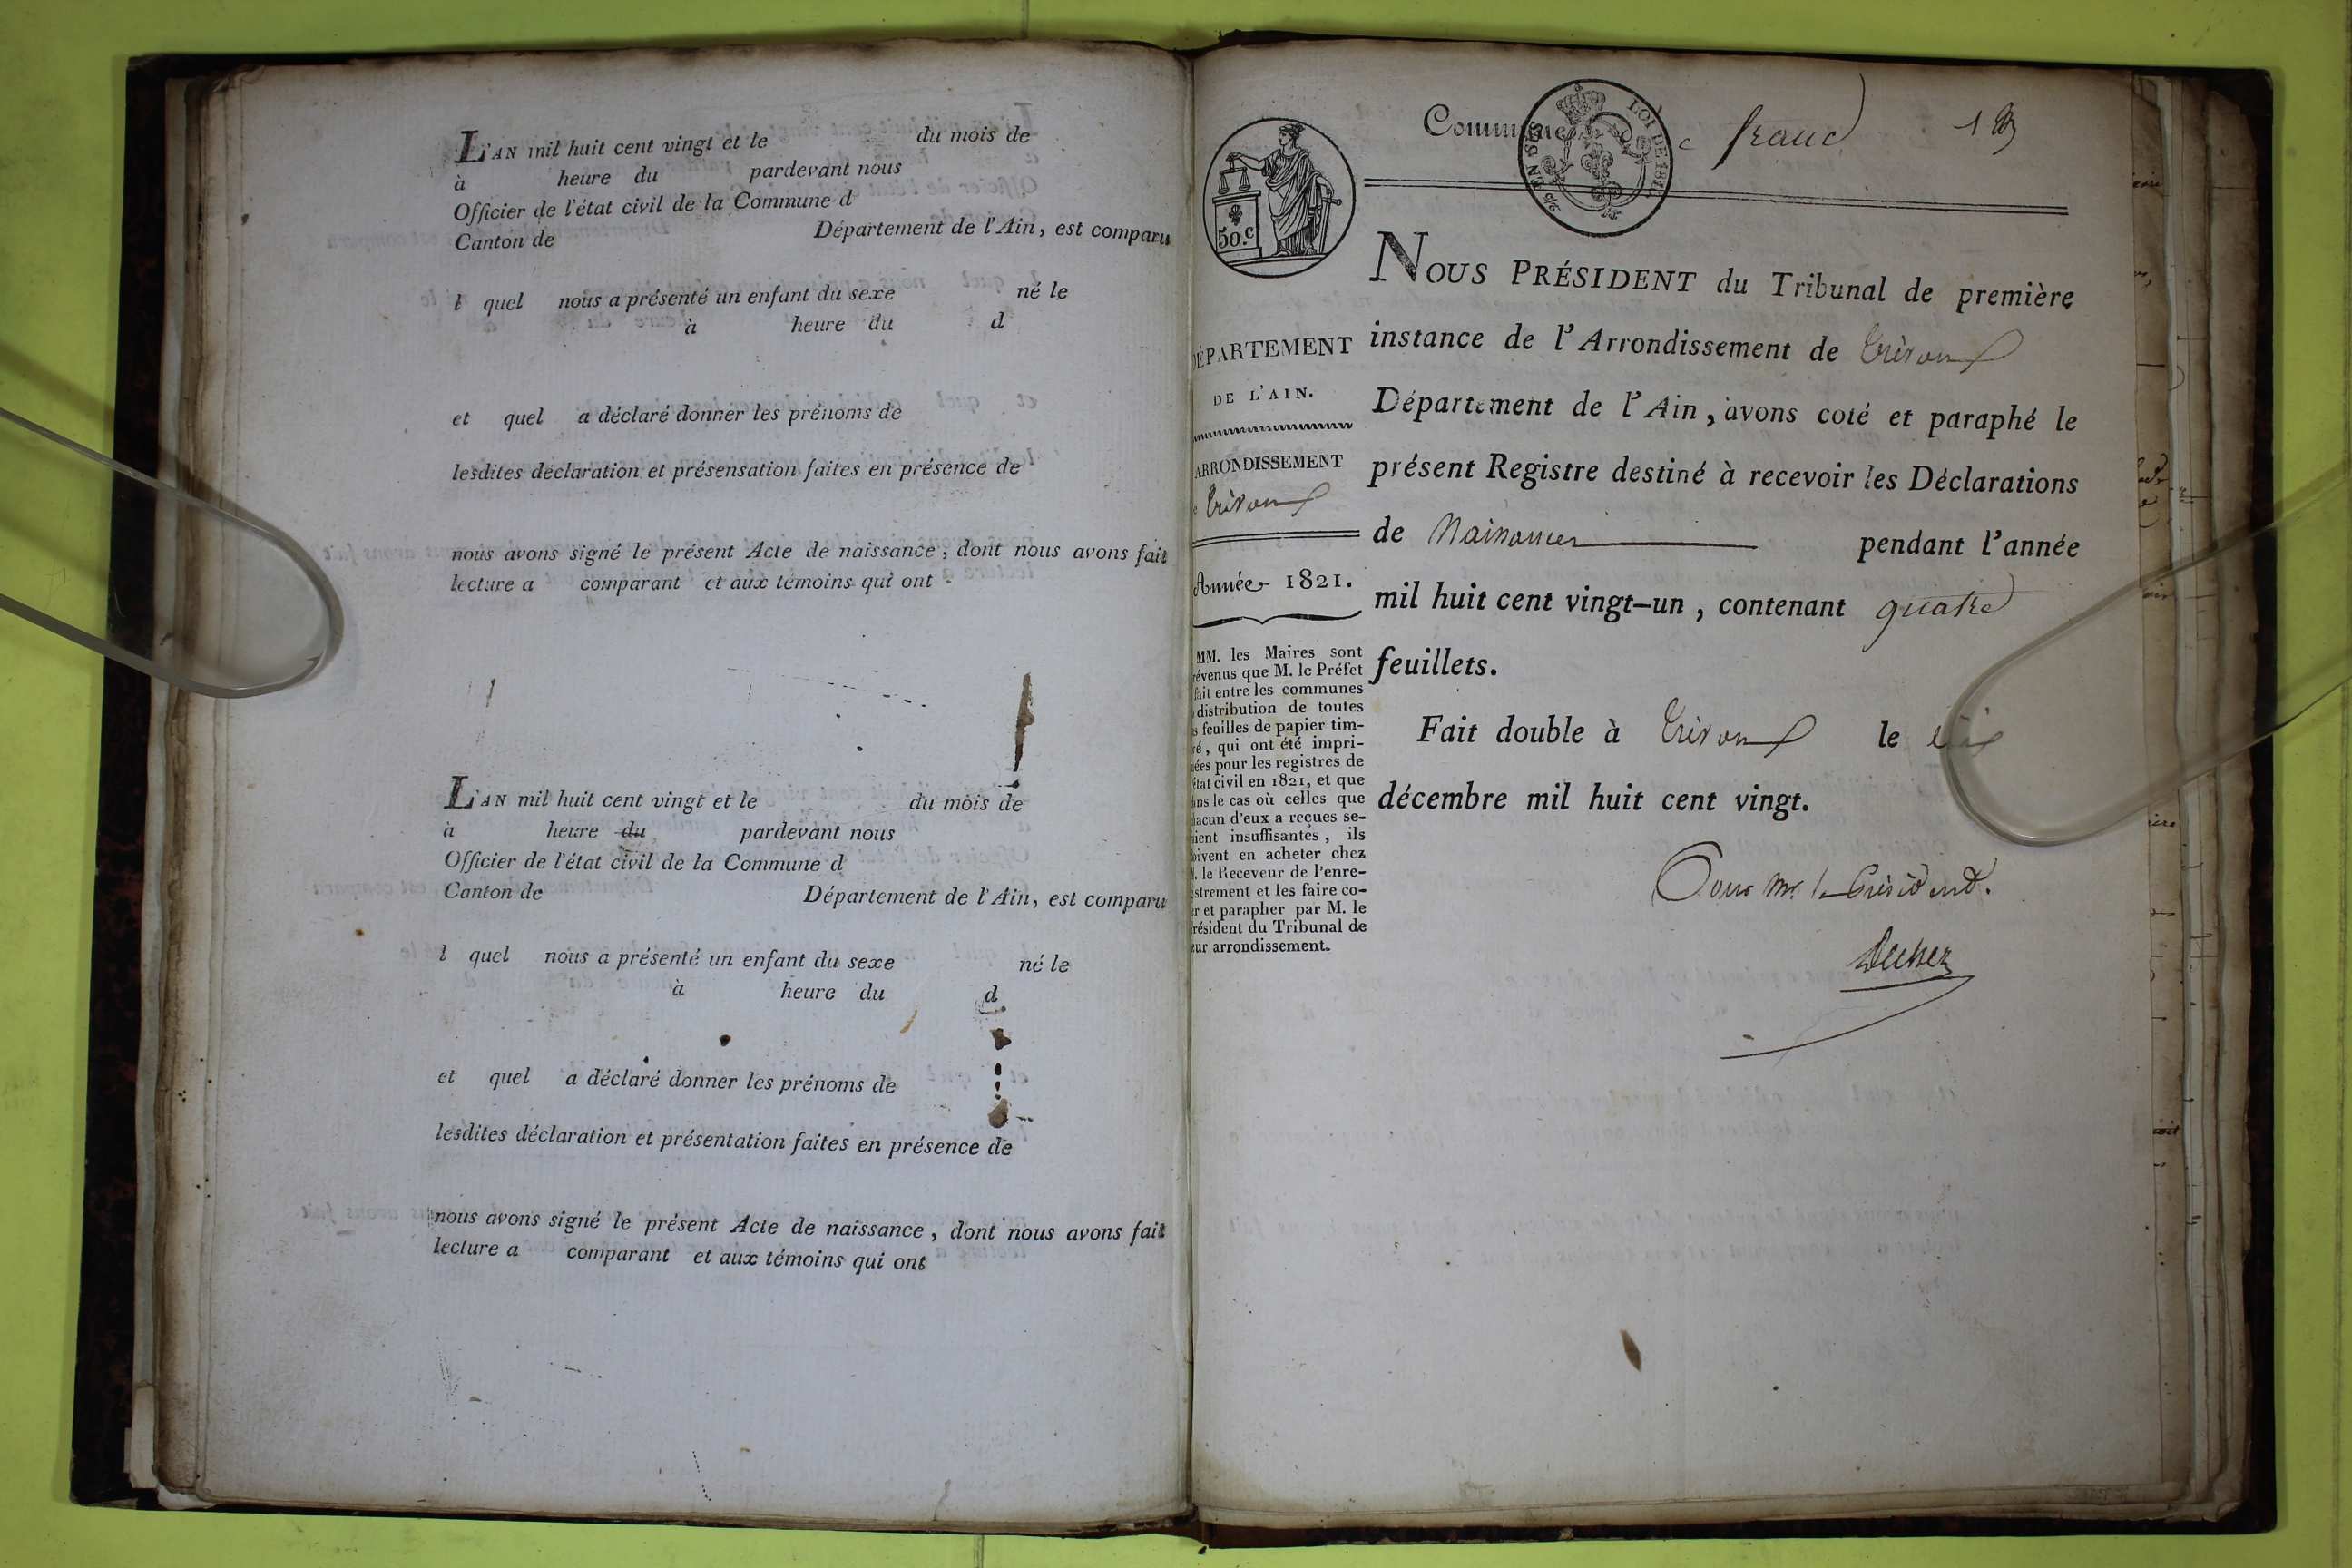 L'AN mil huit cent vingt et le du mois de
à heure du pardevant nous
Officier de l'état civil de la Commune d
Canton de Département de l'Ain, est comparu
l quel nous a présenté un enfant du sexe né le
à heure du d
et quel a déclaré donner les prénoms de
lesdites déclaration et présensation faites en présence de
nous avons signé le présent Acte de naissance, dont nous avons fait
lecture a comparant et aux témoins qui ont
L'AN mil huit cent vingt et le du mois de
à heure du pardevant nous
Officier de l'état civil de la Commune d
Canton de Département de l'Ain, est comparu
l quel nous a présenté un enfant du sexe né le
à heure du d
et quel a déclaré donner les prénoms de
lesdites déclaration et présentation faites en présence de
nous avons signé le présent Acte de naissance, dont nous avons fait
lecture a comparant et aux témoins qui ont
Commune
LOI DE 181
50.c
DÉPARTEMENT
DE L'AIN.
ARRONDISSEMENT
Trévoux
Année 1821.
MM. les Maires sont
révenus que M. le Préfet
fait entre les communes
distribution de toutes
s feuilles de papier tim-
ré, qui ont été impri-
ées pour les registres de
état civil en 1821, et que
ans le cas où celles que
hacun d'eux a reçues se-
aient insuffisantes, ils
oivent en acheter chez
M. le Receveur de l'enre-
istrement et les faire co-
er et parapher par M. le
résident du Tribunal de
eur arrondissement.
NOUS PRÉSIDENT du Tribunal de première
instance de l'Arrondissement de Trévoux
Département de l'Ain, avons coté et paraphé le
présent Registre destiné à recevoir les Déclarations
de Naissances pendant l'année
mil huit cent vingt-un, contenant quatre
feuillets.
Fait double à Trévoux le
décembre mil huit cent vingt.
Pour Mr. le Président.